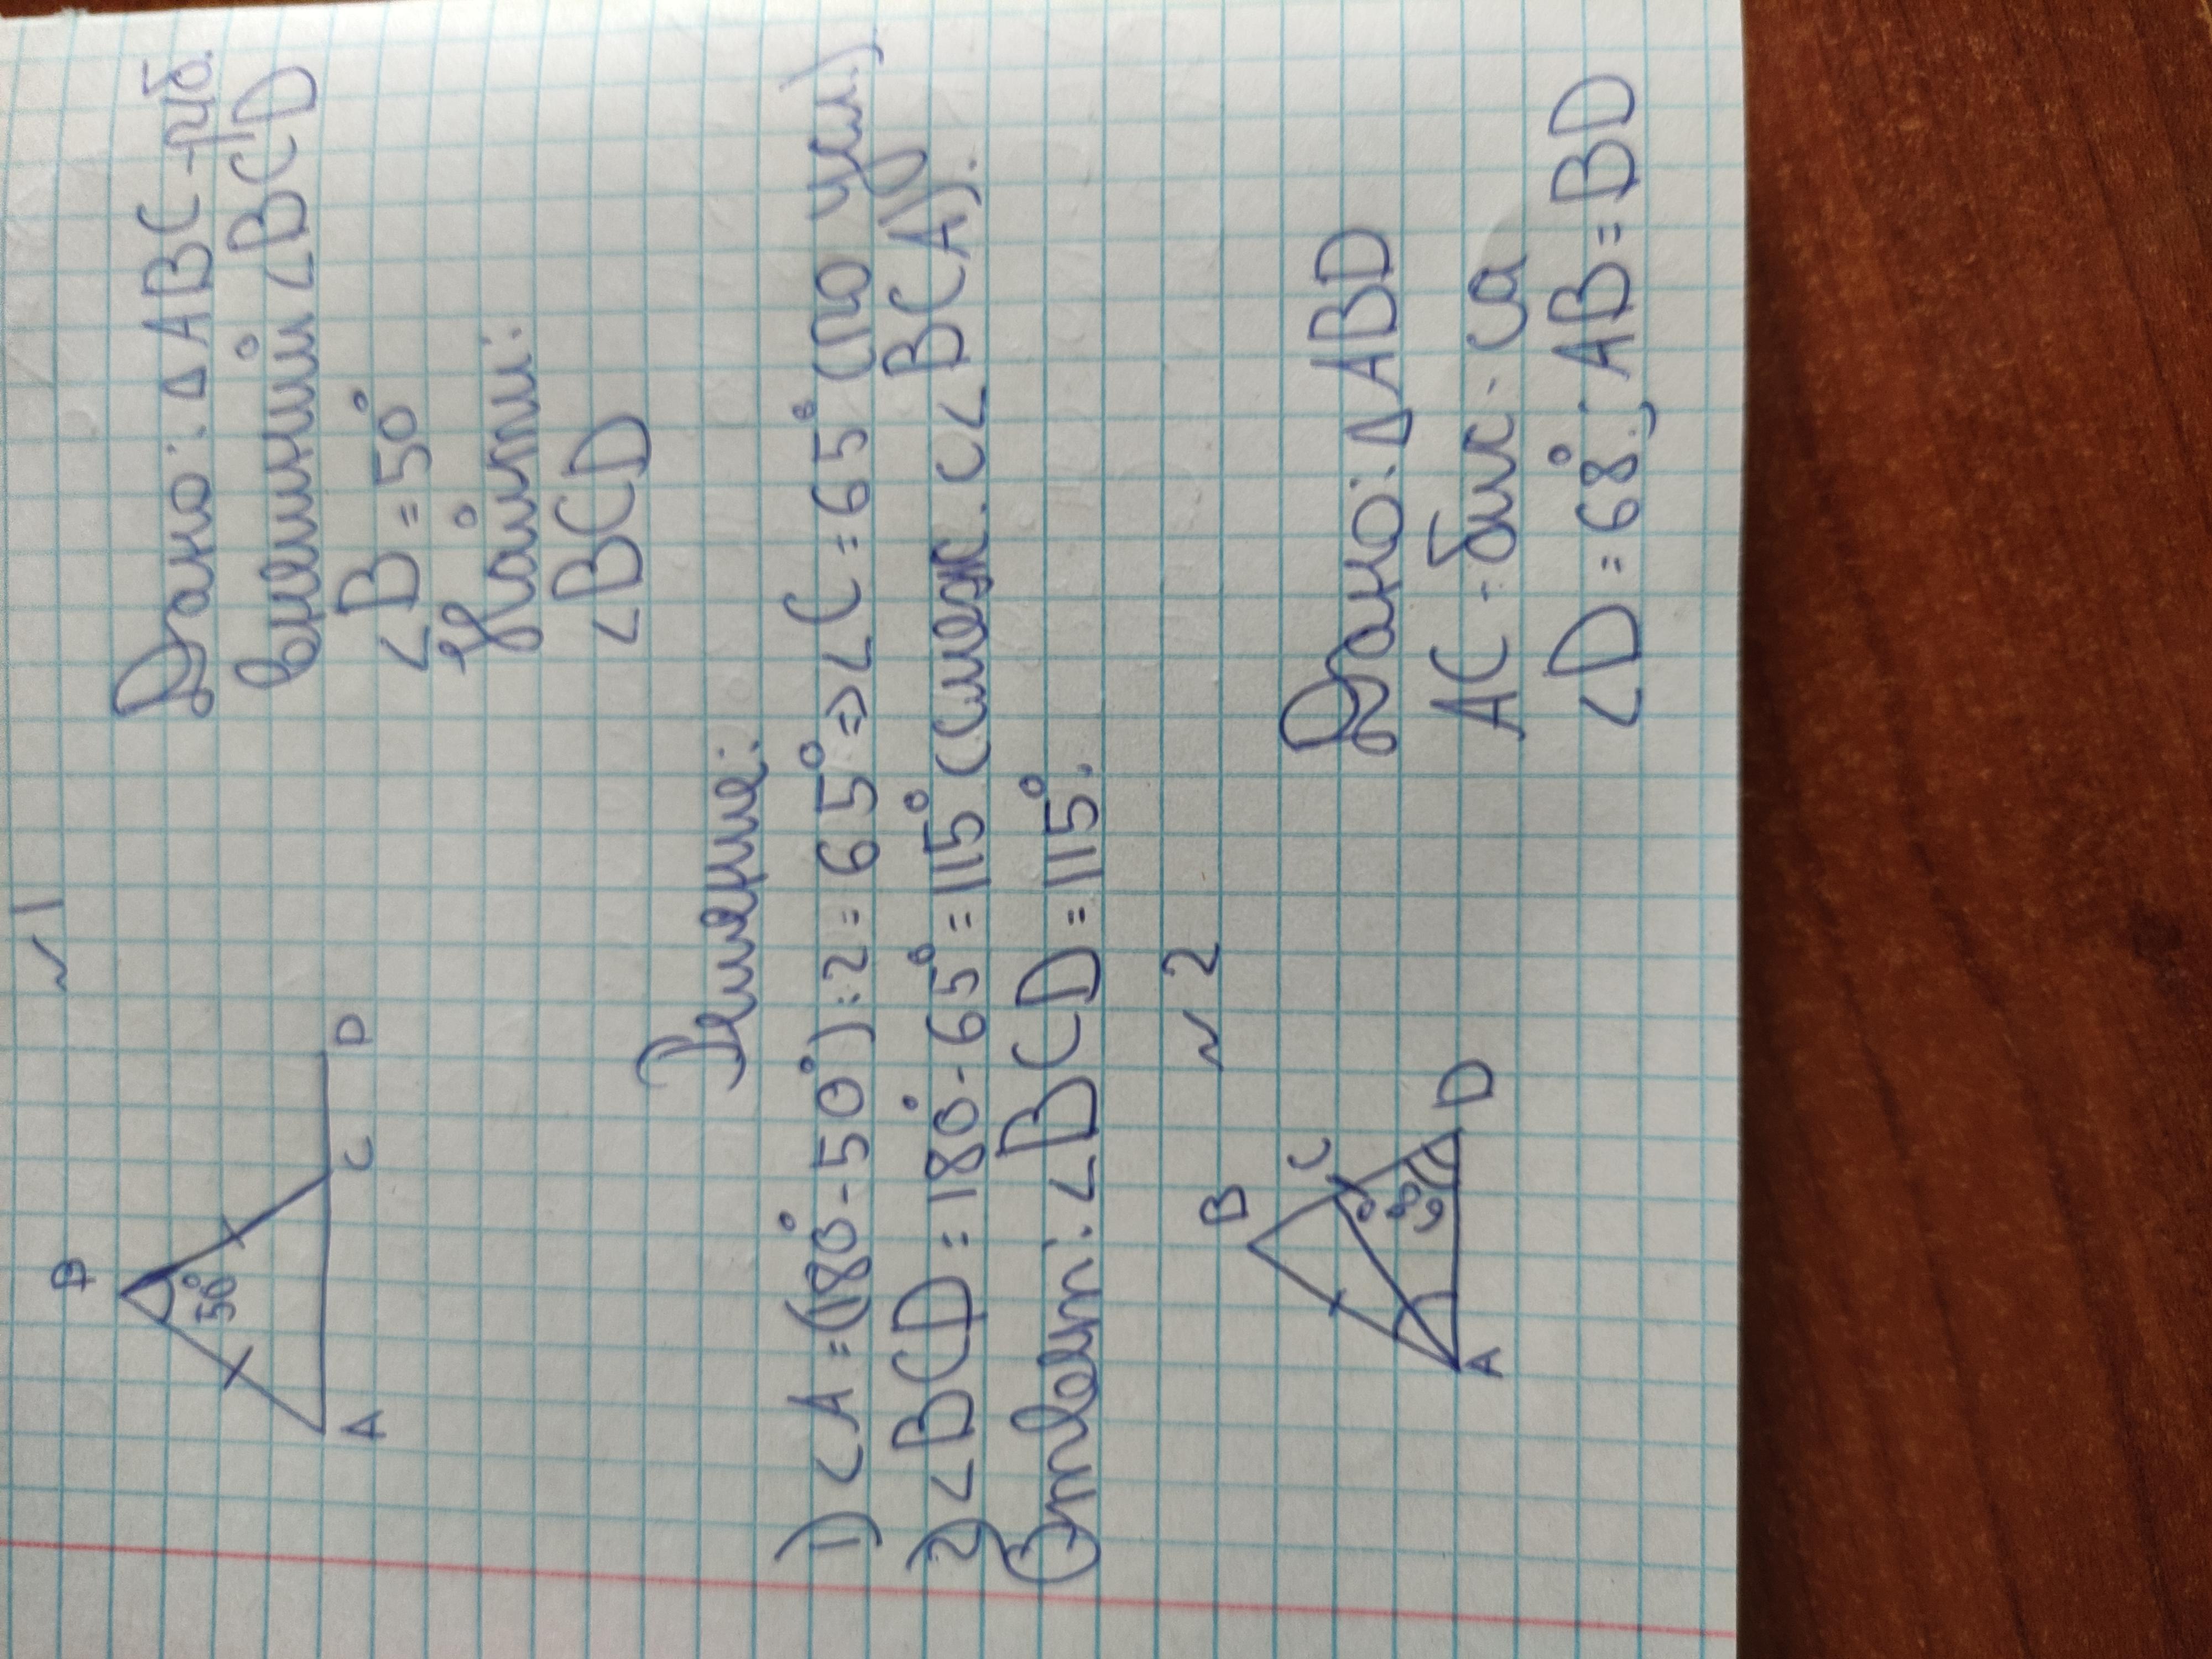 ~ 1
B
50°
A
C
D
Дано: Δ ABC - р/б.
внешний ∠BCD
∠B = 50°
Найти:
∠BCD
Решение:
1) ∠A = (180° - 50°) : 2 = 65° => ∠C = 65° (по усл)
2) ∠BCD = 180° - 65° = 115° (смеж. с ∠ BCA).
Ответ: ∠BCD = 115°.
~ 2
B
C
68°
A
D
Дано: Δ ABD
AC - бис - са
∠D = 68°; AB = BD